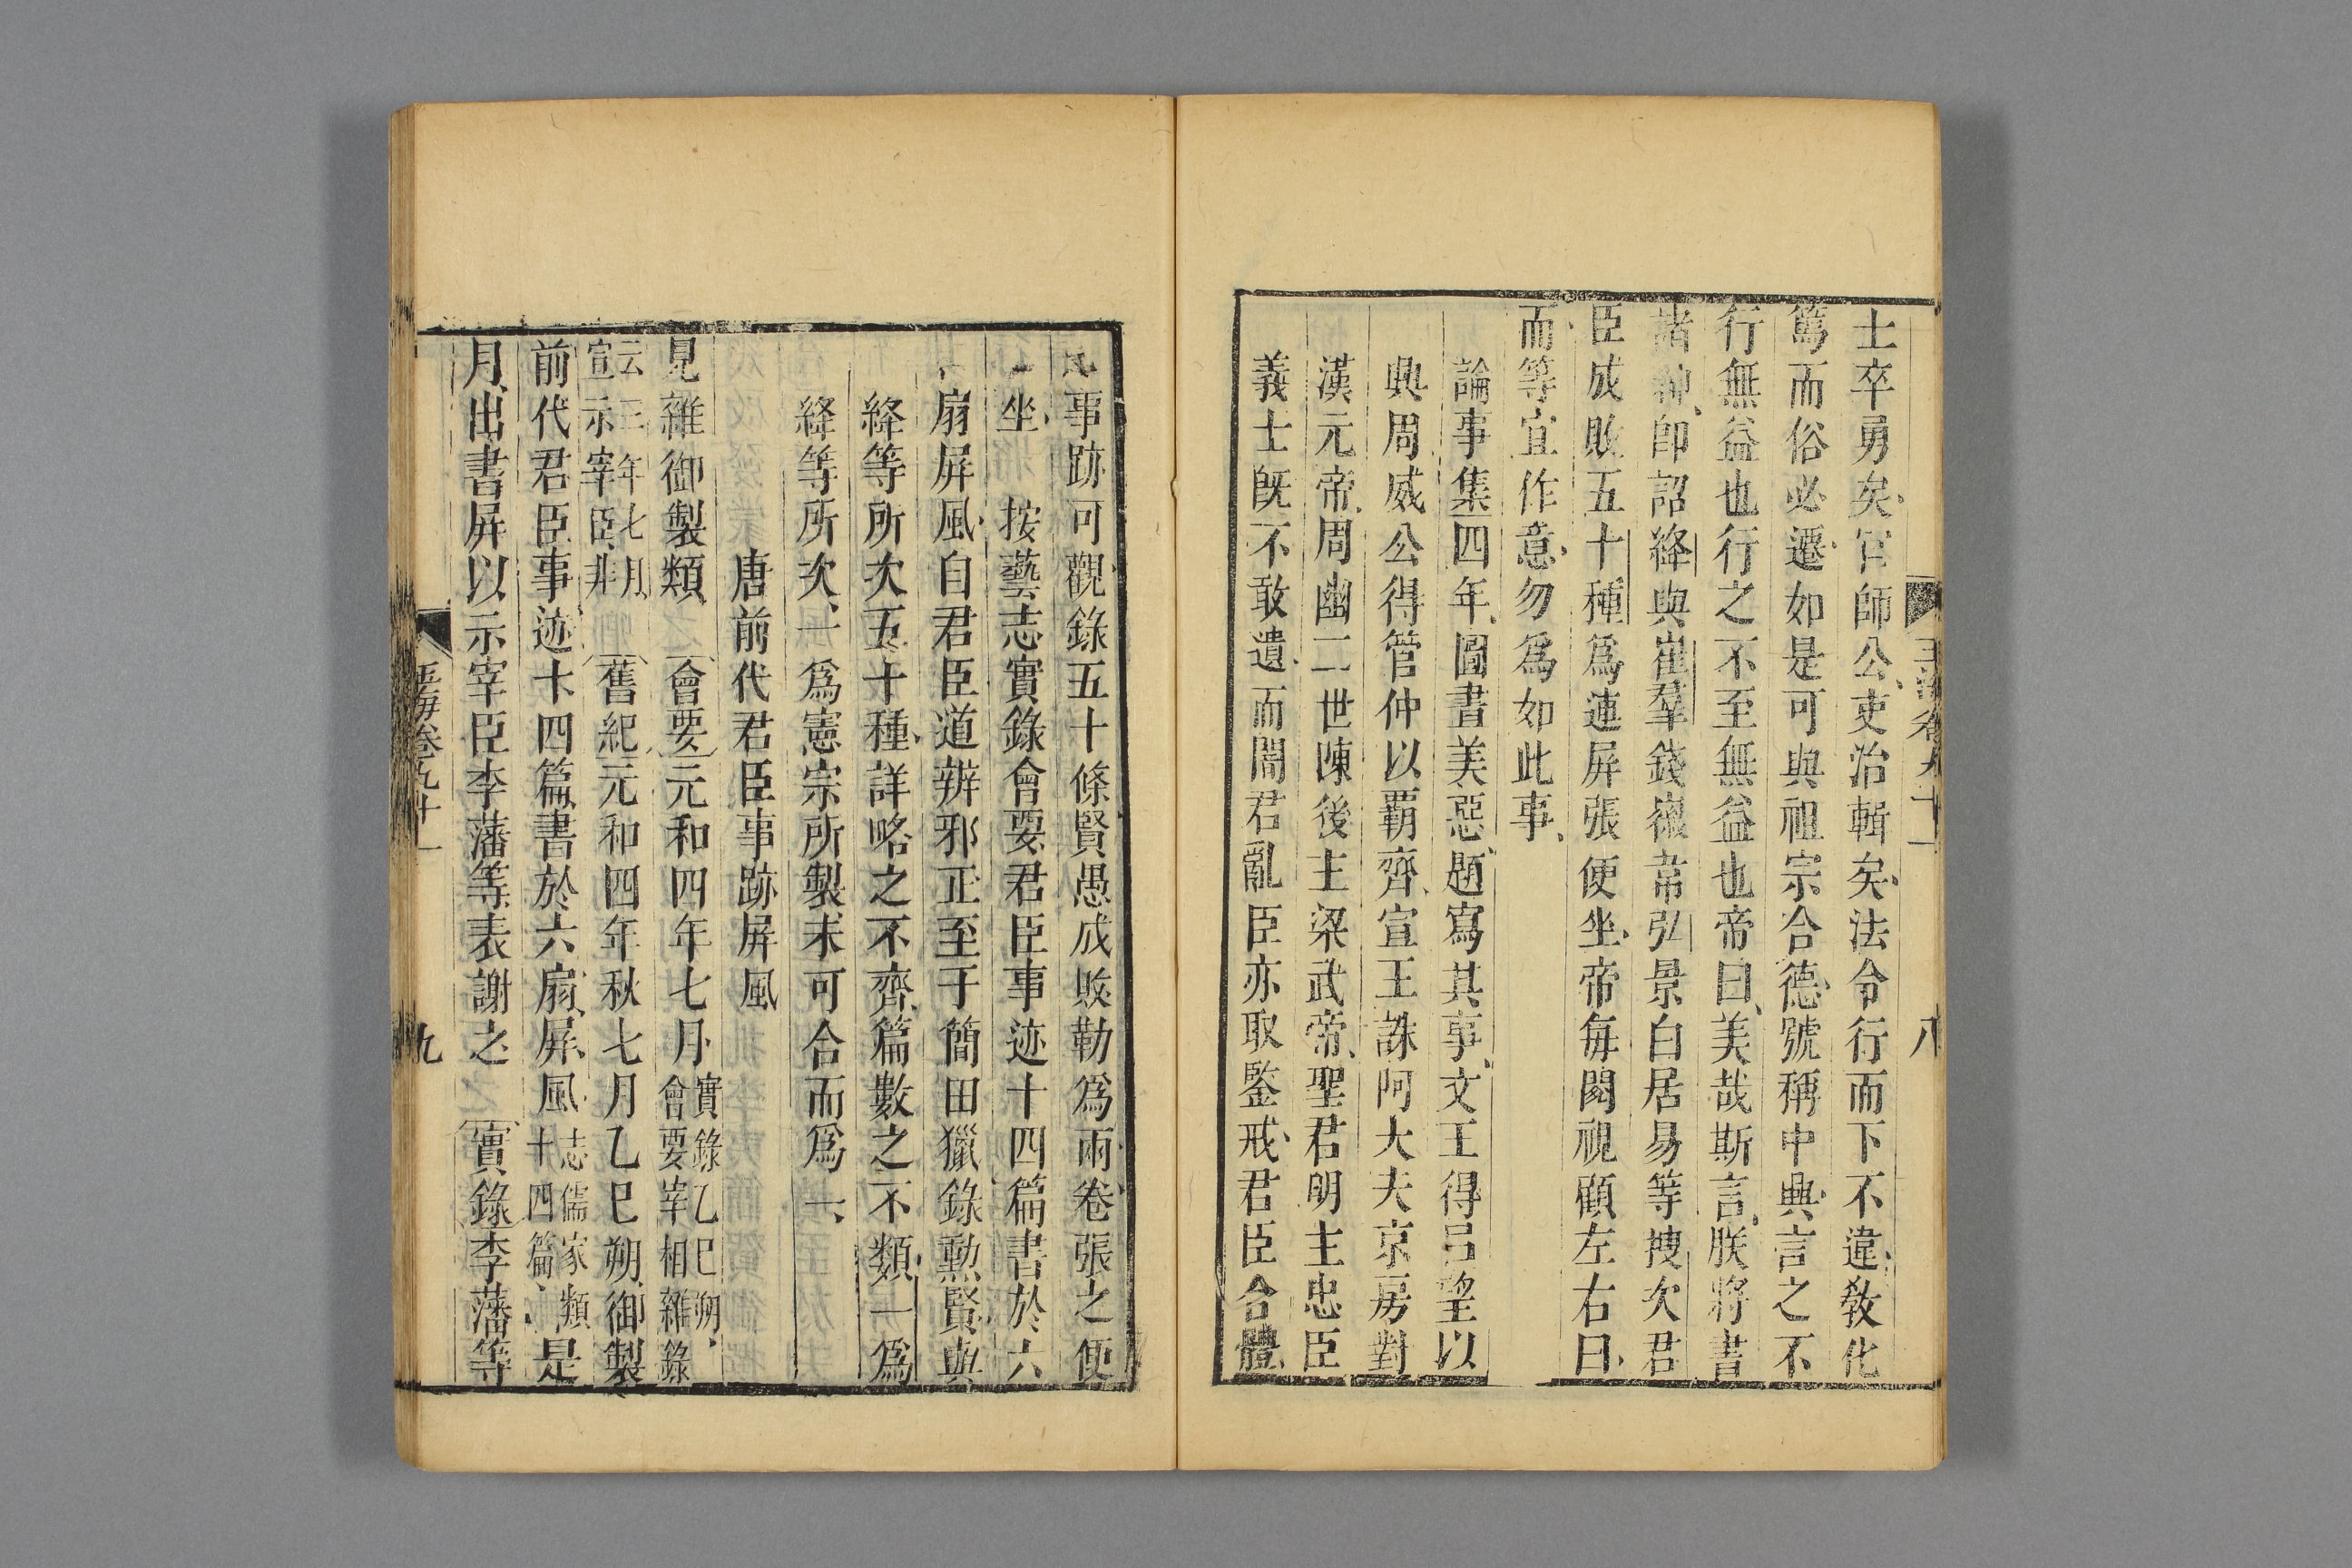 士卒勇矣官師公吏治輯矣法令行而下不違敎化
篤而俗必遷如是可與祖宗合德號稱中興言之不
行無益也行之不至無益也帝曰美哉斯言朕將書
諸紳卽詔絳與崔羣錢徽韋弘景白居易等搜次君
臣成敗五十種爲連屏張便坐帝每閱視顧左右曰
而等宜作意勿爲如此事
論事集四年圖書美惡題寫其事文王得呂望以
興周威公得管仲以覇齊宣王誅阿大夫京房對
漢元帝周幽二世陳後主梁武帝聖君明主忠臣
義士旣不敢遺而闇君亂臣亦取鑒戒君臣合體
玉海卷九十一 八
事跡可觀錄五十條賢愚成敗勒爲兩卷張之便
坐 按藝志實錄會要君臣事迹十四篇書於六
扇屏風自君臣道辨邪正至于簡田獵錄勲賢與
絳等所次五十種詳略之不齊篇數之不類一爲
絳等所次一爲憲宗所製未可合而爲一
唐前代君臣事跡屏風
見雜御製類 會要元和四年七月實錄乙巳朔會要宰相雜錄
云三年七月宣示宰臣非 舊紀元和四年秋七月乙巳朔御製
前代君臣事迹十四篇書於六扇屏風志儒家類十四篇是
月出書屏以示宰臣李藩等表謝之 實錄李藩等
玉海卷九十一 九